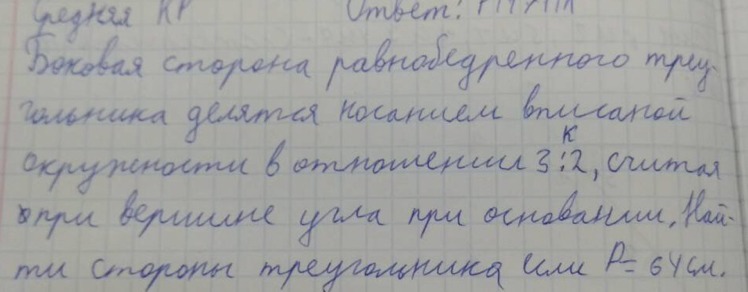 Средняя КР Ответ:
Боковая сторона равнобедренного треу-
гольника делятся косанием вписаной
окружности в отношении 3:2, считая
к
при вершине угла при основании. Най-
ти стороны треугольника если P= 64 см.